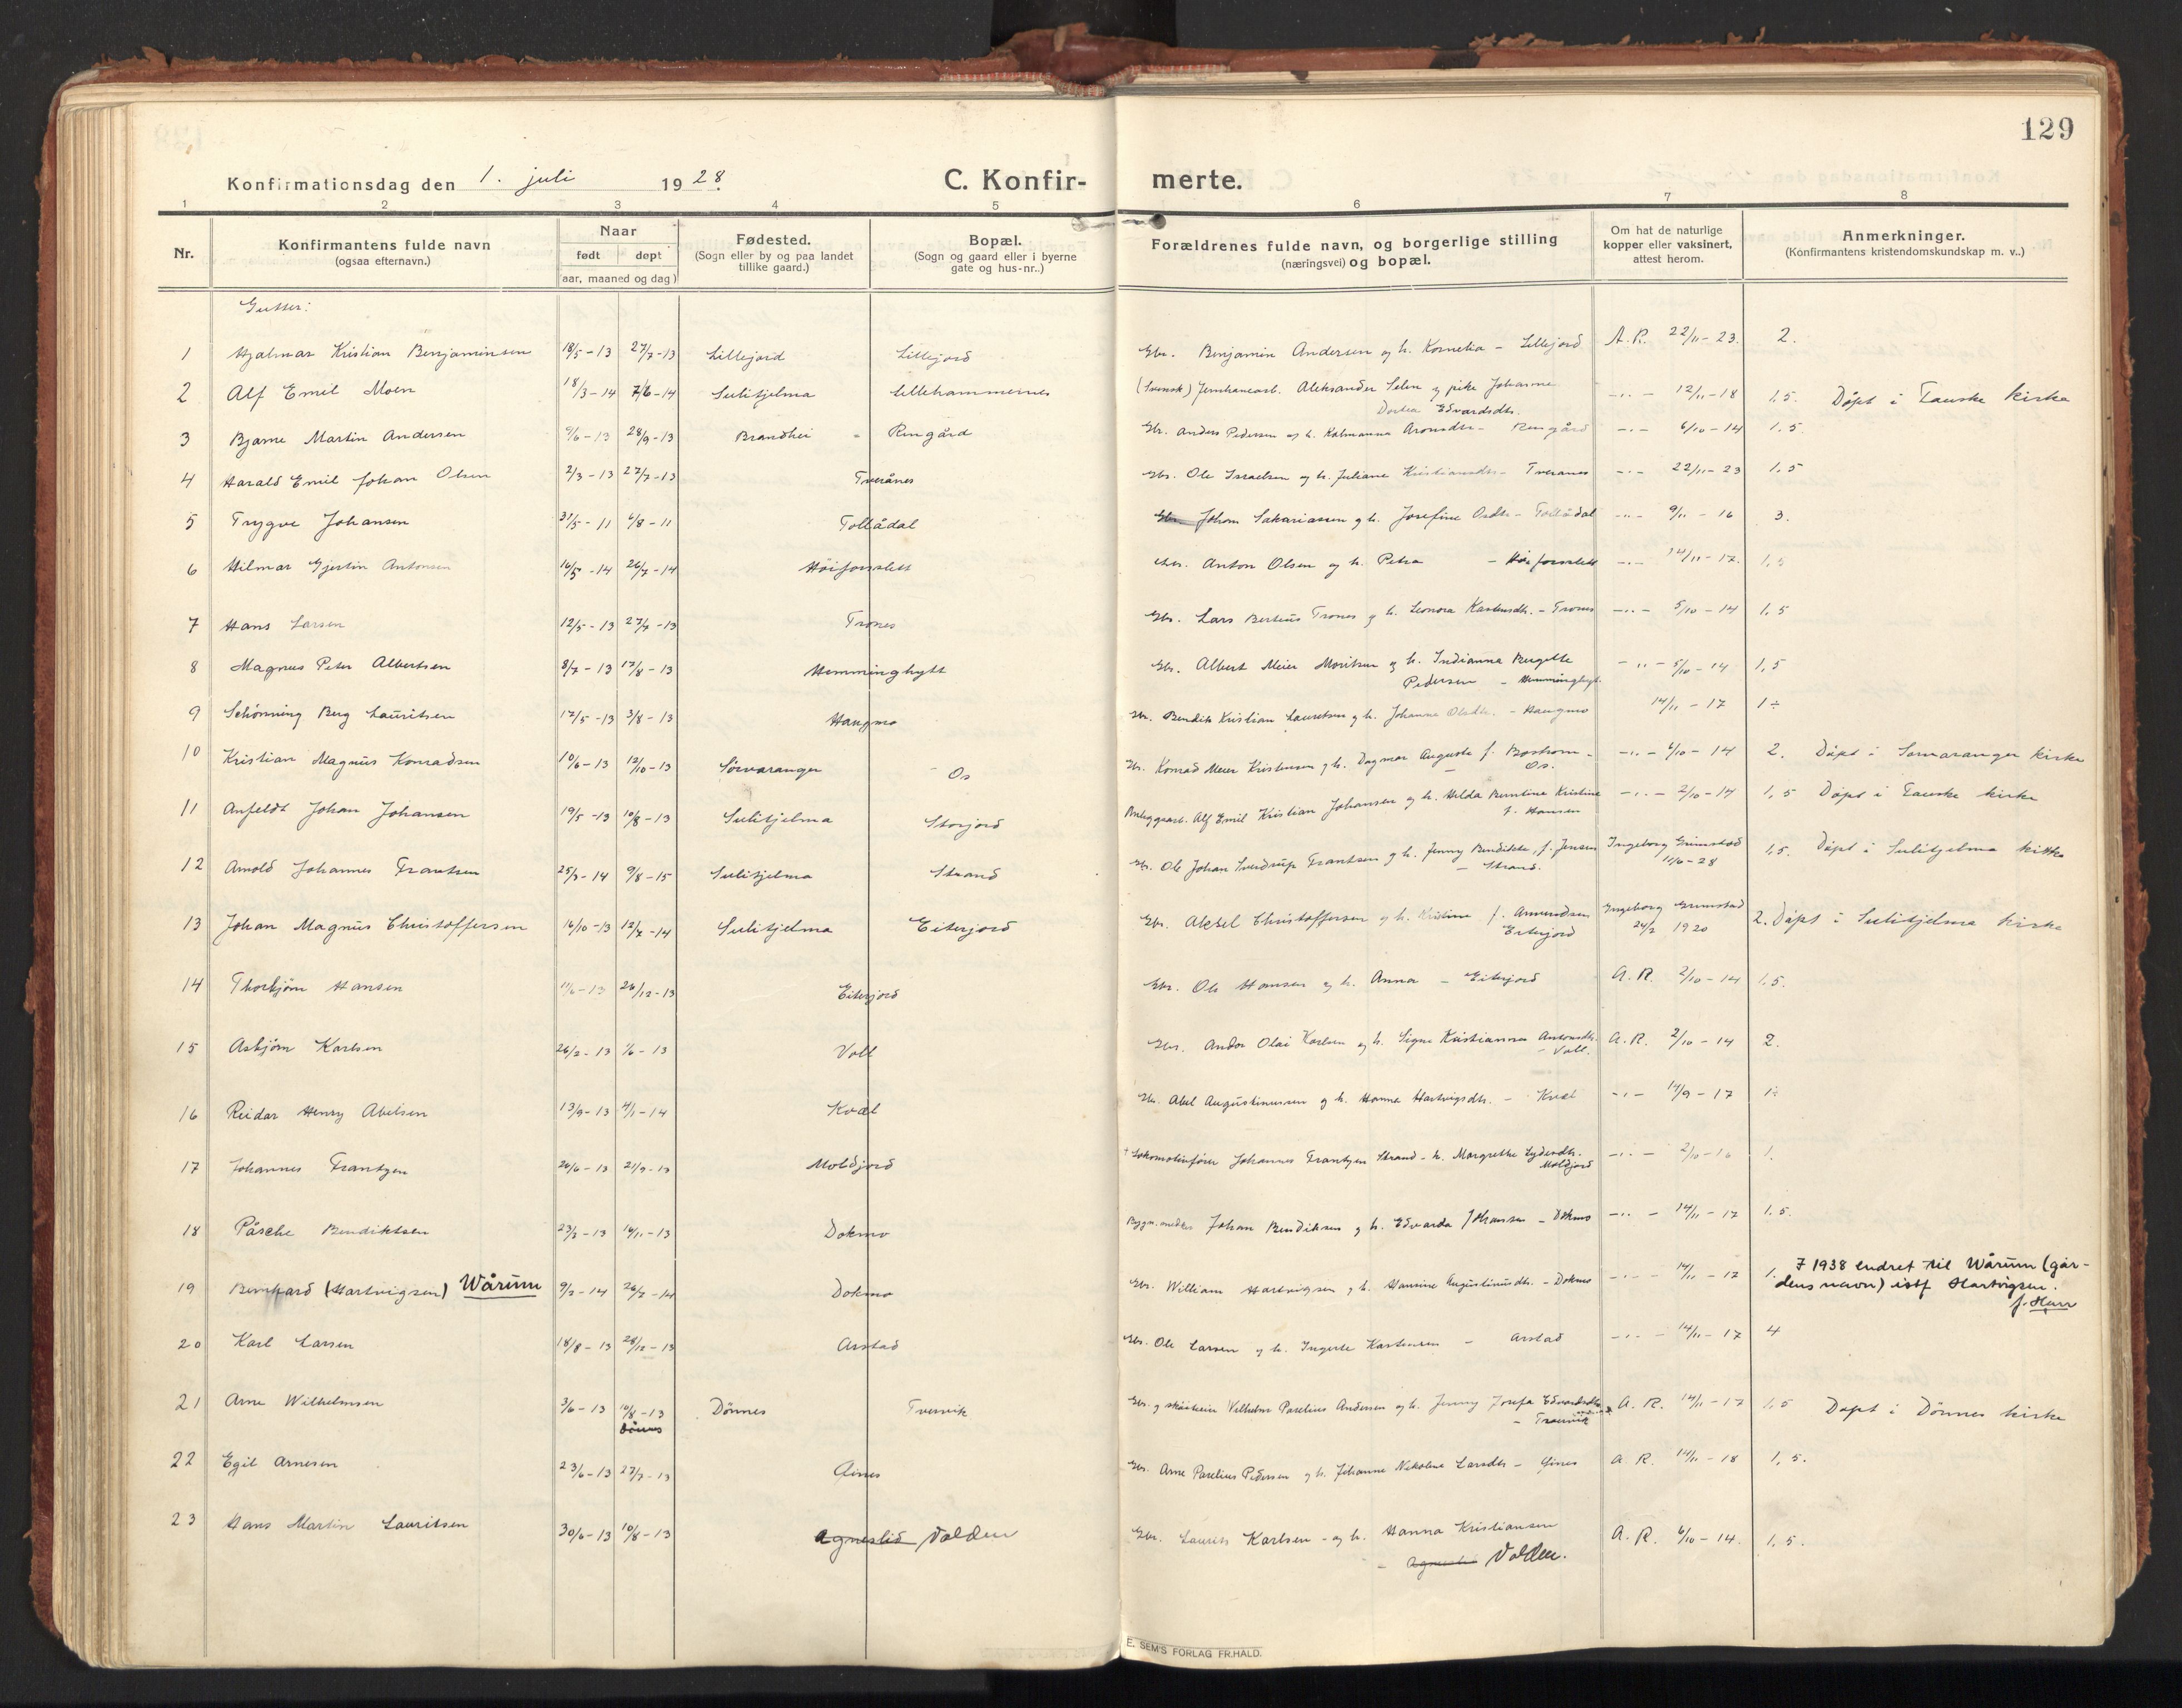 129
Konfirmationsdag den 1. juli 1928. C. Konfir- merte.
1 2 3 4 5 6 7 8
Nr. Konfirmantens fulde navn (ogsaa efternavn.) Naar født døpt (aar, maaned og dag) Fødested. (Sogn eller by og paa landet tillike gaard.) Bopæl. (Sogn og gaard eller i byerne gate og hus-nr..) Forældrenes fulde navn, og borgerlige stilling (næringsvei) og bopæl. Om hat de naturlige kopper eller vaksinert, attest herom. Anmerkninger. (Konfirmantens kristendomskundskap m. v..)
Gutter:
1 Hjalmar Kristian Benjaminsen 18/5-13 27/7-13 Lillejord Lillejord Gbr. Benjamin Andersen og h. Kornelia - Lillejord A. R. 22/11-23. 2.
2 Alf Emil Moen 18/3-14 7/6-14 Sulitjelma Lillehammernes (Svensk) Jernbanearb. Aleksander Selin og pike Johanne -"- 12/11-18 1,5. Døpt i Fauske kirke
Dortea Edvardsdtr.
3 Bjarne Martin Andersen 9/6-13 28/9-13 Brandhei - Rengård Gbr. Anders Pedersen og h. Kolmanna Aronsdtr - Rengård -"- 6/10-14 1,5.
4 Harald Emil Johan Olsen 2/3-13 27/7-13 Tverånes Gbr. Ole Israelsen og h. Juliane Kristiansdtr - Tveranes -"- 22/11-23 1,5
5 Trygve Johansen 31/5-11 6/8-11 Tollådal Gbr. Johan Sakariassen og h. Josefine Ordtr - Tollådal -"- 9/11-16 3.
6 Hilmar Gjertin Antonsen 16/5-14 26/7-14 Høiforsslett Gbr. Anton Olsen og h. Petra - Høiforsslett -"- 14/11-17. 1,5
7 Hans Larsen 12/5-13 27/7-13 Trones Gbr. Lars Berteus Trones og h. Leonora Karstensdtr. - Trones -"- 5/10-14 1,5
8 Magnus Peter Albertsen 8/7-13 17/8-13 Hemminghytt Gbr. Albert Meier Moritsen og h. Indianna Bergette -"- 5/10-14 1,5
Pedersen - Hemminghytt
9 Schønning Berg Lauritsen 17/5-13 3/8-13 Haugmo Gbr. Bendik Kristian Lauritsen og h. Johanna Olsdtr. - Haugmo 14/11-17 1÷
10 Kristian Magnus Konradsen 10/6-13 12/10-13 Sørvaranger Os Gbr. Konrad Meier Kristensen og h. Dagmar Auguste f. Bostrom - Os. -"- 6/10-14 2. Døpt i Sørvaranger kirke
11 Anfeldt Johan Johansen 19/5-13 10/8-13 Sulitjelma Storjord Anleggsarb. Alf Emil Kristian Johansen og h. Hilda Berntine Kristine -"- 2/10-14 1,5 Døpt i Fauske kirke
f. Hansen
12 Arnold Johannes Frantsen 25/3-14 9/8-15 Sulitjelma Strand Gbr. Ole Johan Sverdrup Frantsen og h. Jenny Bendikte, f. Jensen Ingeborg Grimstad 1,5. Døpt i Sulitjelma kirke
- Strand. 11/6-28
13 Johan Magnus Christoffersen 16/10-13 12/7-14 Sulitjelma Eiterjord Gbr. Aksel Christoffersen og h. Kristine f. Amundsen Ingeborg Grimstad 2. Døpt i Sulitjelma kirke
Eiterjord 24/2 1920
14 Thorbjørn Hansen 11/6-13 26/12-13 Eiterjord Gbr. Ole Hansen og h. Anna - Eiterjord A. R. 2/10-14 1,5.
15 Asbjørn Karlsen 26/2-13 1/6-13 Voll Gbr. Andor Olai Karlsen og h. Signe Kristianna Antonsdtr. - Voll. A. R. 2/10-14 2.
16 Reidar Henry Abelsen 13/9-13 4/1-14 Kvæl Gbr. Abel Augustinussen og h. Hanna Hartvigsdtr. - Kvæl -"- 14/9-17 1÷
17 Johannes Frantzen 26/6-13 21/9-13 Moldjord + Lokomotivfører Johannes Frantzen Strand - h. Margrethe Lydersdtr. -"- 2/10-16 1.
Moldjord
18 Påsche Bendiktsen 23/3-13 16/11-13 Dokmo Bygn.snedker Johan Bendiksen og h. Edvarda Johansen - Dokmo -"- 14/11-17 1,5.
19 Bernhard (Hartvigsen) Wårum 9/2-14 26/7-14 Dokmo Gbr. William Hartvigsen og h. Hansine Augustinusdtr. - Dokmo -"- 14/11-17 1. I 1938 endret til Wårum (går-
dens navn) istf Hartvigsen.
20 Karl Larsen 18/8-13 28/12-13 Arstad Gbr. Ole Larsen og h. Ingerte Karstensen - Arstad -"- 14/11-17 4
21 Arne Wilhelmsen 3/6-13 10/8-13 Dønnes Tvervik Gbr. og Vilhelm Parelius Andersen og h. Jenny Josefa Edvardsdtr A. R. 14/11-17 1,5 Døpt i Dønnes kirke
Dønnes
22 Egil Arnesen 23/6-13 27/7-13 Gines Gbr. Arne Parelius Pedersen og h. Johanne Nikoline Larsdtr - Gines A. R. 14/11-18 1,5.
23 Hans Martin Lauritsen 30/6-13 10/8-13 Agneslid Volden Gbr. Laurits Karlsen - og h. Hanna Kristiansen A. R. 6/10-14. 1,5.
- Agneslid Volden.
E. SEM'S FORLAG FR.HALD.